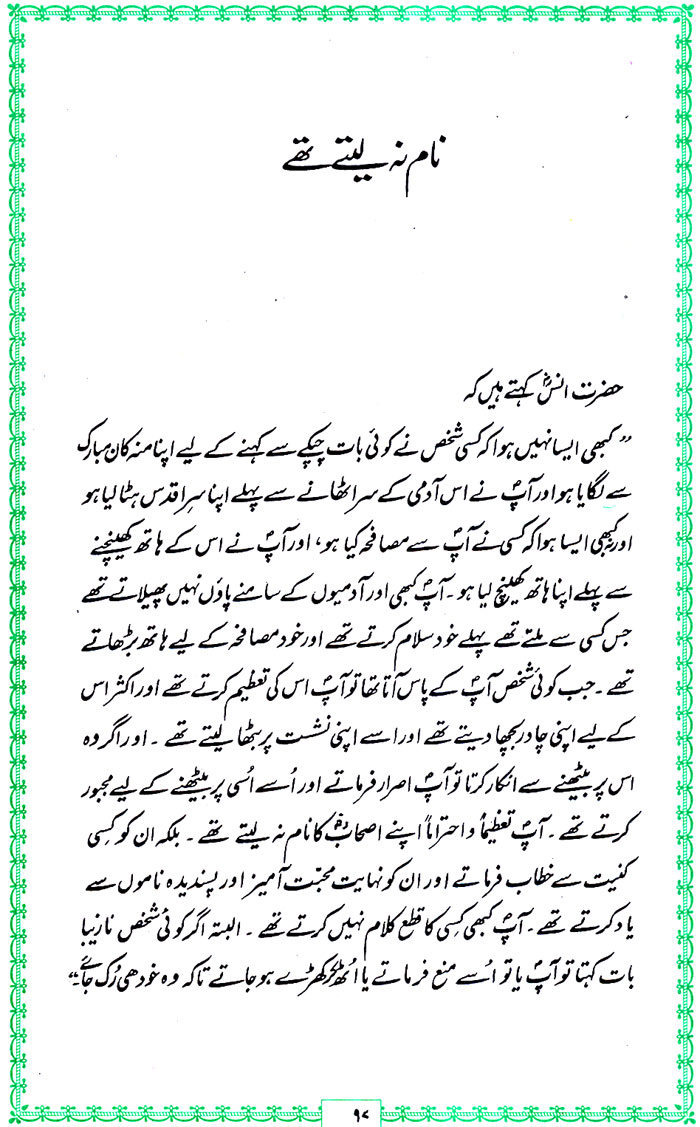 نام نہ لیتے تھے
حضرت انسؓ کہتے ہیں کہ
”کبھی ایسا نہیں ہوا کہ کسی شخص نے کوئی بات چپکے سے کہنے کے لیے اپنا منہ کان مبارک
سے لگایا ہو اور آپؐ نے اس آدمی کے سر اٹھانے سے پہلے اپنا سرِ اقدس ہٹا لیا ہو
اور کبھی ایسا ہوا کہ کسی نے آپؐ سے مصافحہ کیا ہو، اور آپؐ نے اس کے ہاتھ کھینچنے
سے پہلے اپنا ہاتھ کھینچ لیا ہو۔ آپؐ کبھی اور آدمیوں کے سامنے پاؤں نہیں پھیلاتے تھے
جس کسی سے ملتے تھے پہلے خود سلام کرتے تھے اور خود مصافحہ کے لیے ہاتھ بڑھاتے
تھے۔ جب کوئی شخص آپؐ کے پاس آتا تھا تو آپؐ اس کی تعظیم کرتے تھے اور اکثر اس
کے لیے اپنی چادر بچھا دیتے تھے اور اسے اپنی نشست پر بٹھا لیتے تھے۔ اور اگر وہ
اس پر بیٹھنے سے انکار کرتا تو آپؐ اصرار فرماتے اور اُسے اُسی پر بیٹھنے کے لیے مجبور
کرتے تھے۔ آپؐ تعظیماً و احتراماً اپنے اصحابؓ کا نام نہ لیتے تھے۔ بلکہ ان کو کِسی
کنیت سے خطاب فرماتے اور ان کو نہایت محبّت آمیز اور پسندیدہ ناموں سے
یاد کرتے تھے۔ آپؐ کبھی کِسی کا قطع کلام نہیں کرتے تھے۔ البتہ اگر کوئی شخص نازیبا
بات کہتا تو آپؐ یا تو اُسے منع فرماتے یا اُٹھ کر کھڑے ہو جاتے تاکہ وہ خود ہی رُک جائے۔“
۹۷